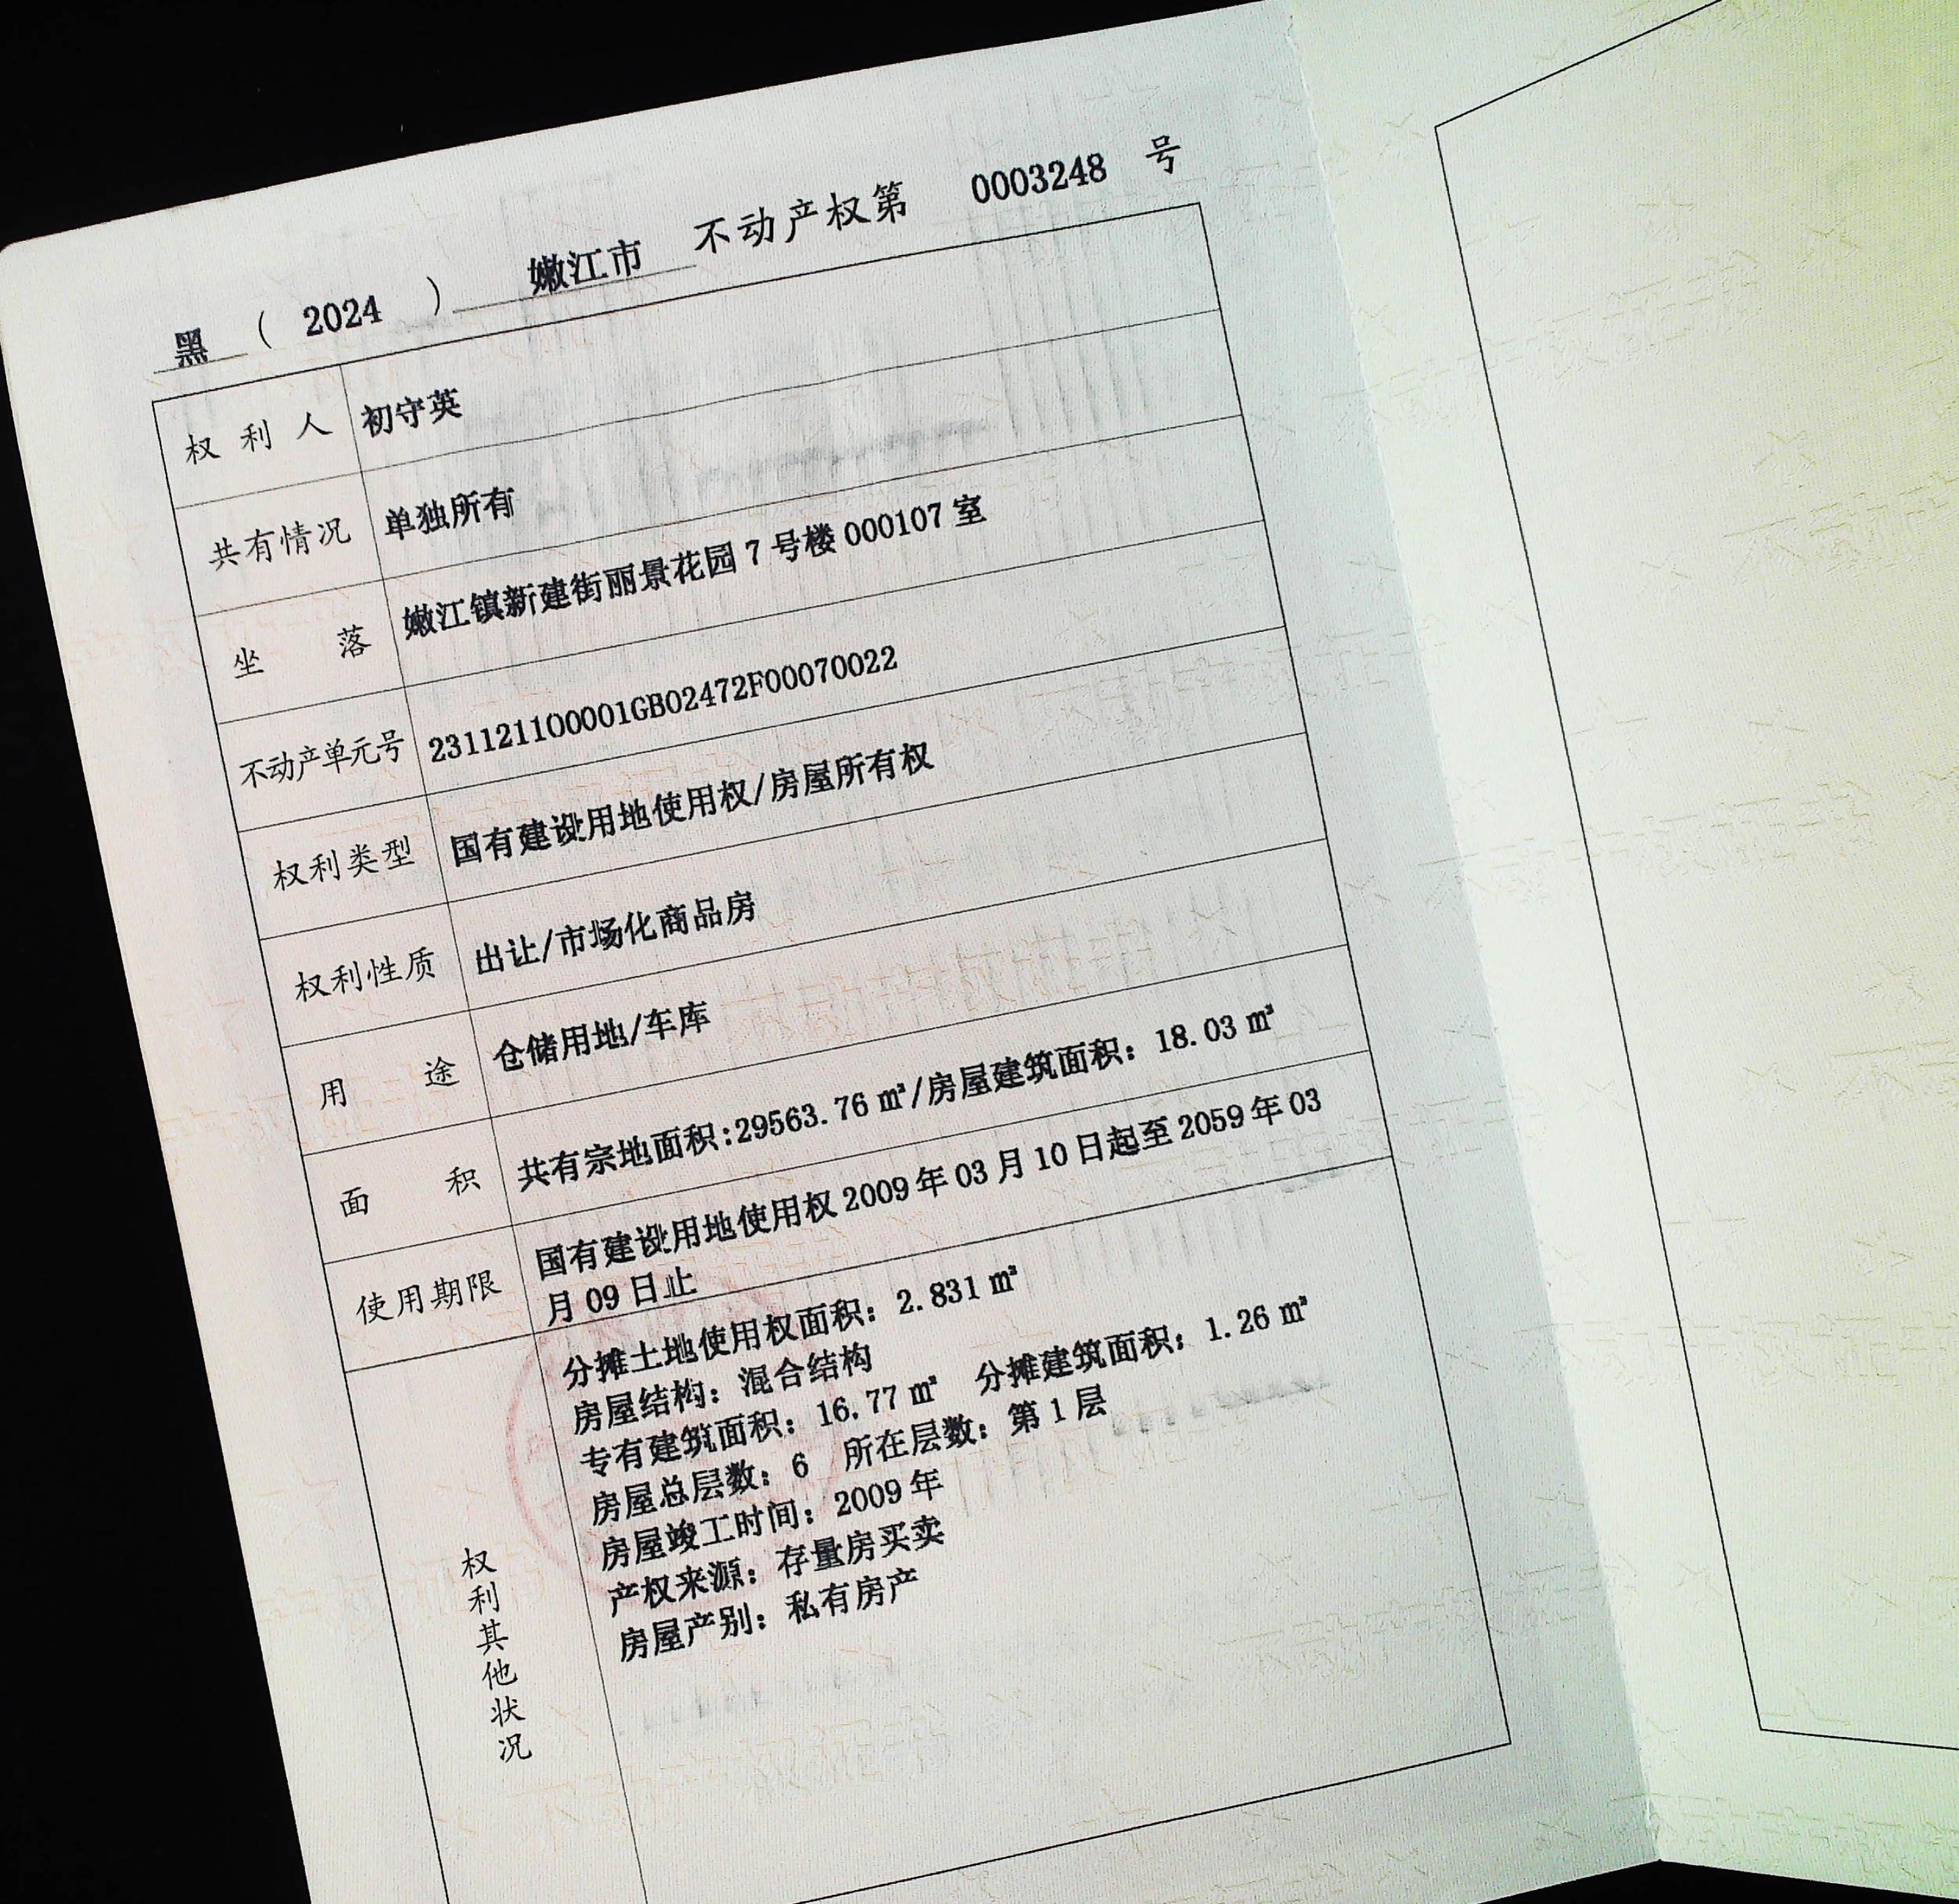 黑 ( 2024 ) 嫩江市 不动产权第 0003248 号
权利人 初守英
共有情况 单独所有
坐落 嫩江镇新建街丽景花园 7 号楼 000107 室
不动产单元号 231121100001GB02472F00070022
权利类型 国有建设用地使用权/房屋所有权
权利性质 出让/市场化商品房
用途 仓储用地/车库
面积 共有宗地面积:29563.76 ㎡/房屋建筑面积: 18.03 ㎡
使用期限 国有建设用地使用权 2009 年 03 月 10 日起至 2059 年 03
月 09 日止
权利其他状况
分摊土地使用权面积: 2.831 ㎡
房屋结构: 混合结构
专有建筑面积: 16.77 ㎡ 分摊建筑面积: 1.26 ㎡
房屋总层数: 6 所在层数: 第 1 层
房屋竣工时间: 2009 年
产权来源: 存量房买卖
房屋产别: 私有房产